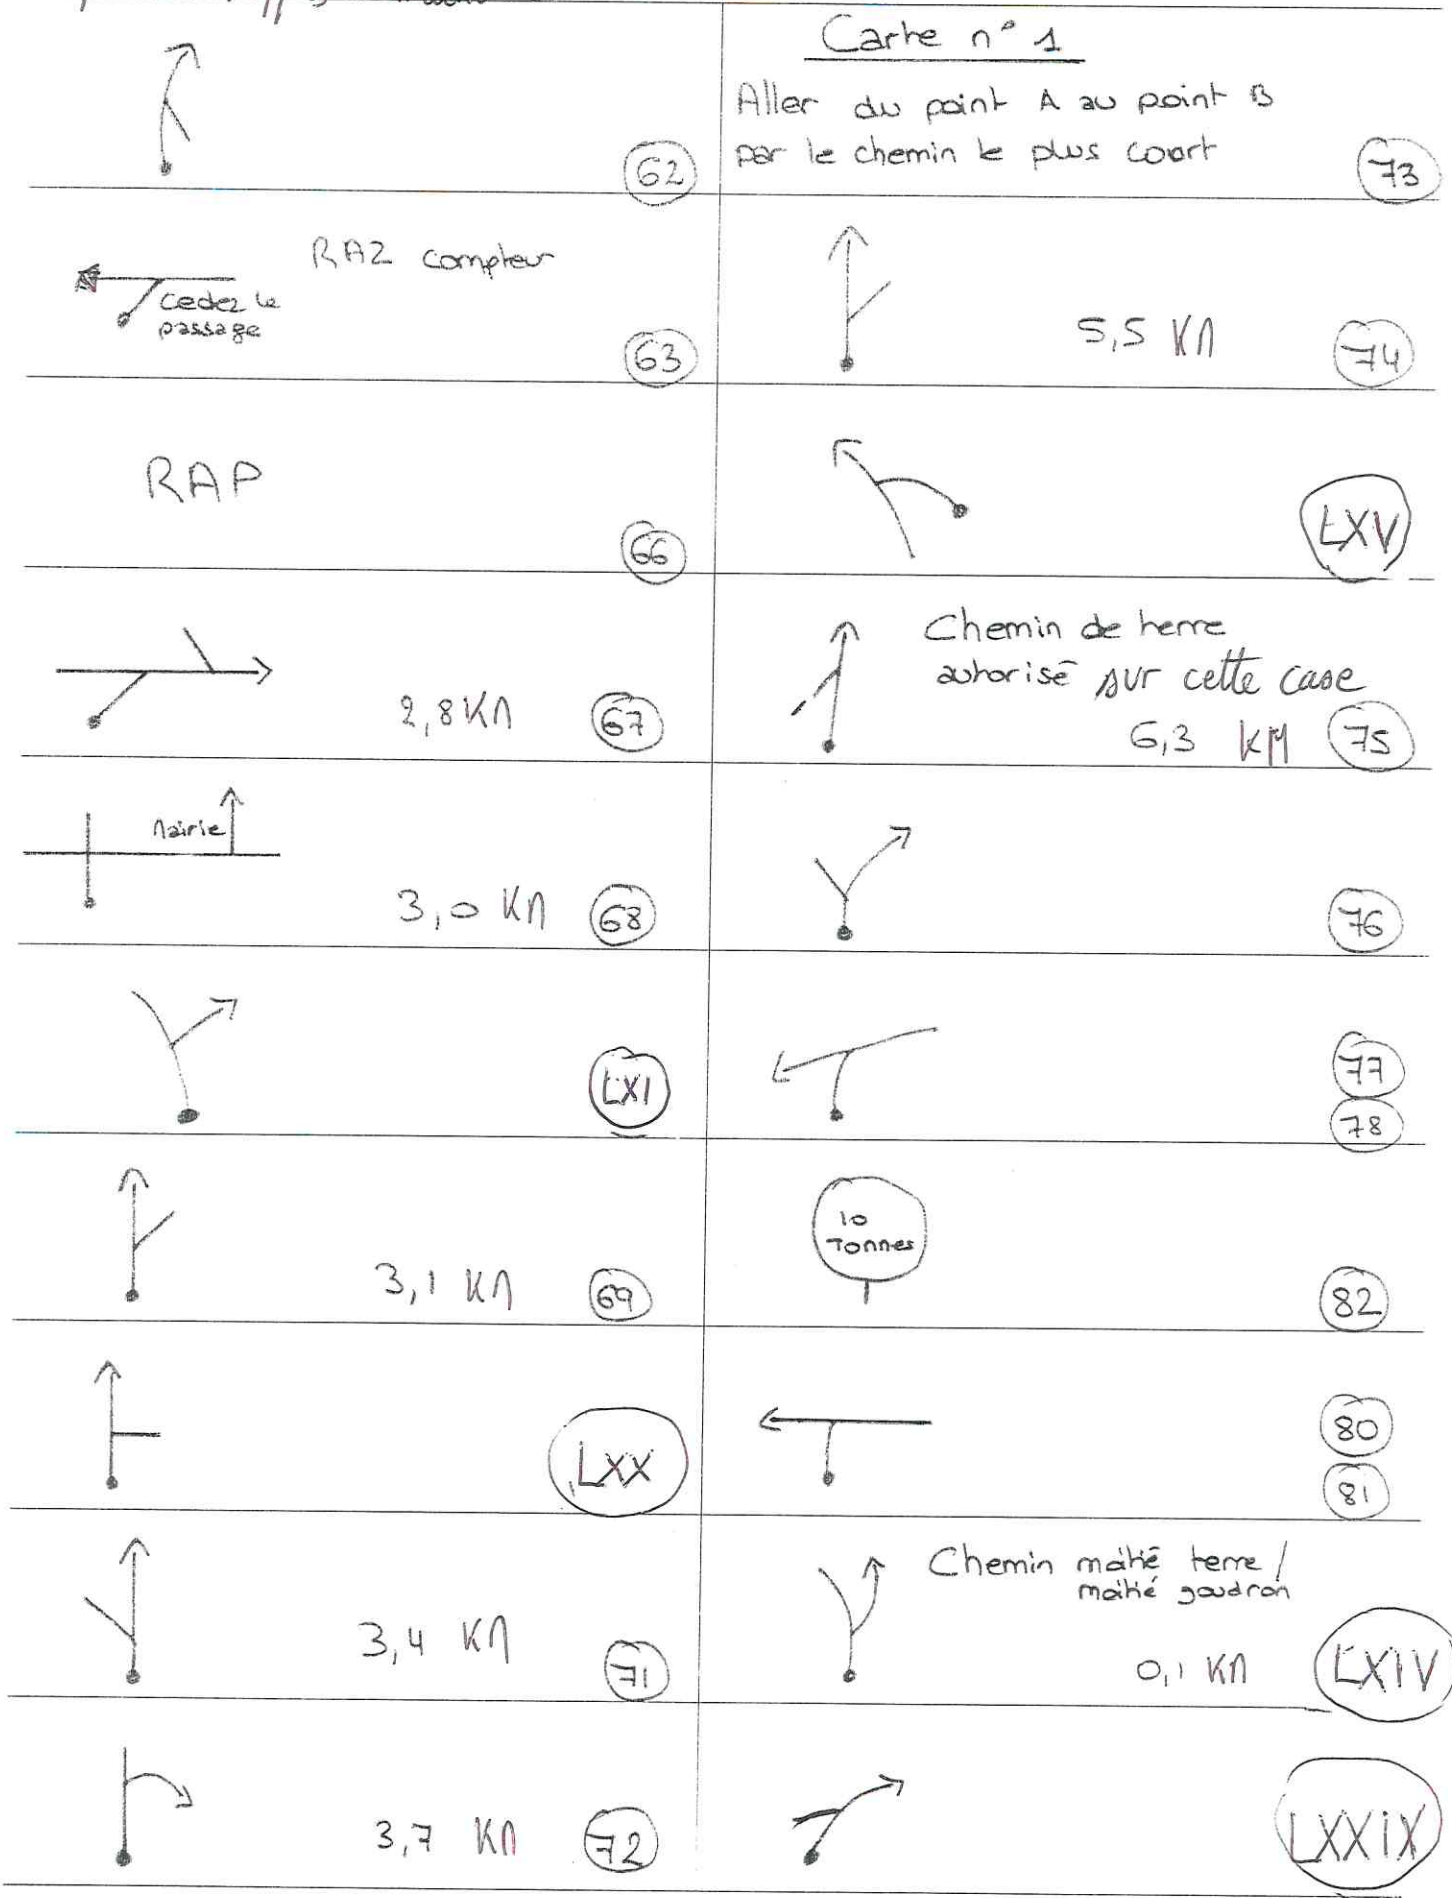 62
RAZ compteur
Cedez le
passage
63
RAP
66
2,8 KM
67
Mairie
3,0 KM
68
LXI
3,1 KM
69
LXX
3,4 KM
71
3,7 KM
72
Carte n° 1
Aller du point A au point B
par le chemin le plus court
73
5,5 KM
74
LXV
Chemin de terre
autorisé sur cette case
6,3 KM
75
76
77
78
10
Tonnes
82
80
81
Chemin moitié terre /
moitié goudron
0,1 KM
LXIV
LXXIX